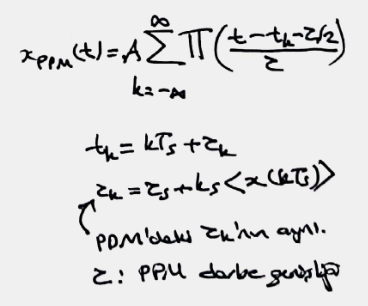 x_PPM(t) = A ∑_{k=-∞}^{∞} Π((t - t_k - τ/2)/τ)
t_k = kT_s + τ_k
τ_k = τ_s + k_s <x(kT_s)>
PDM'deki τ_k'nın aynı.
τ: PPM darbe genişliği